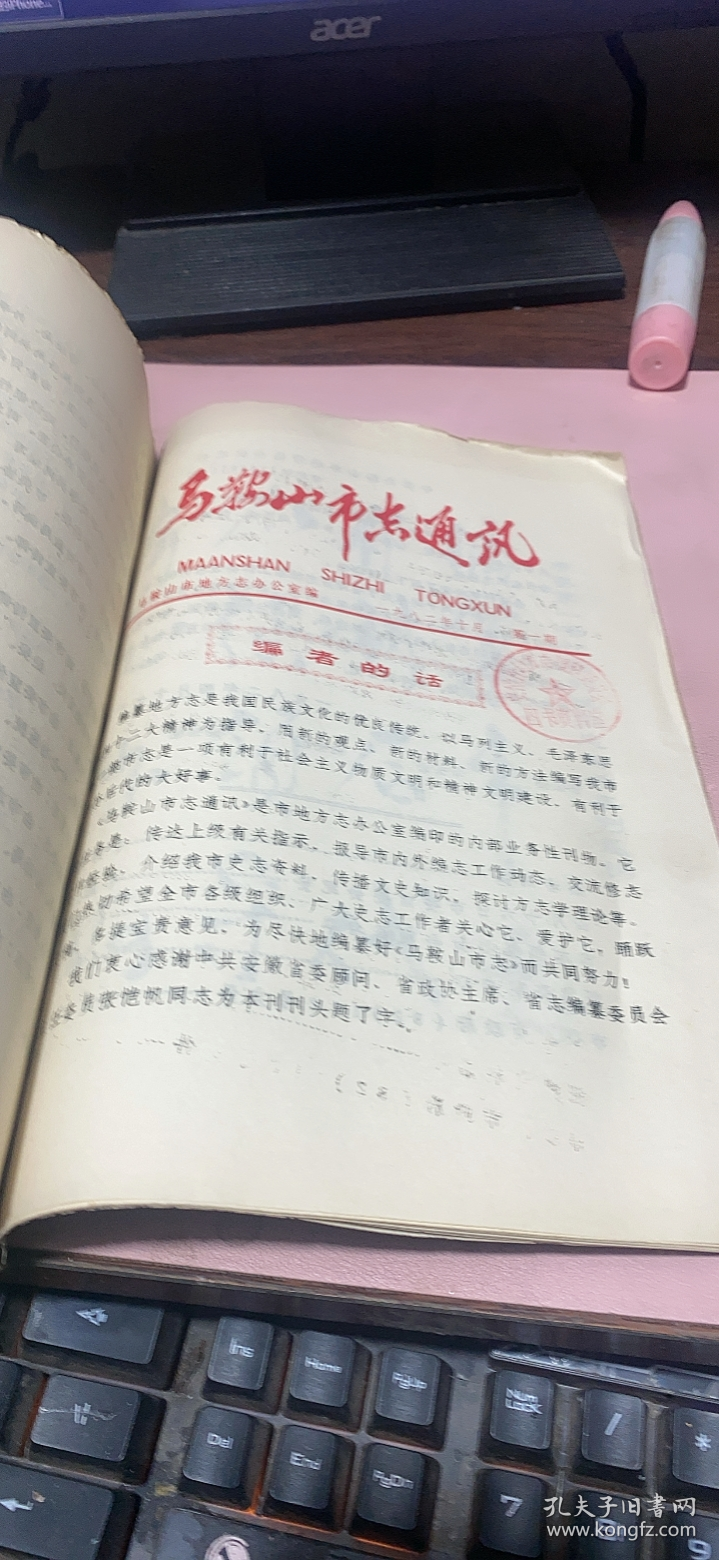 iPhone...
acer
马鞍山市志通讯
MAANSHAN SHIZHI TONGXUN
鞍山市地方志办公室编 一九八二年十月 第一期
编者的话
编纂地方志是我国民族文化的优良传统。以马列主义、毛泽东思
十二大精神为指导,用新的观点、新的材料、新的方法编写我市
市志是一项有利于社会主义物质文明和精神文明建设、有利于
后代的大好事。
《马鞍山市志通讯》是市地方志办公室编印的内部业务性刊物。它
任务是:传达上级有关指示,报导市内外编志工作动态,交流修志
经验,介绍我市史志资料,传播文史知识,探讨方志学理论等。
热切希望全市各级组织、广大史志工作者关心它、爱护它,踊跃
多提宝贵意见,为尽快地编纂好《马鞍山市志》而共同努力!
我们衷心感谢中共安徽省委顾问、省政协主席、省志编纂委员会
张恺帆同志为本刊刊头题了字。
Ins
Home
PgUp
Num Lock
/
*
Del
End
PgDn
7
8
9
孔夫子旧书网
www.kongfz.com